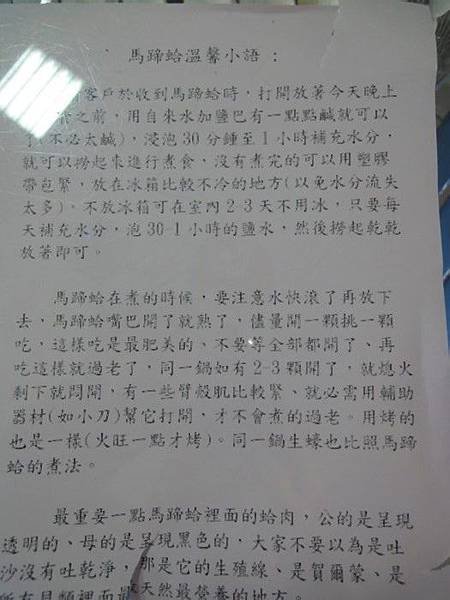 馬蹄蛤溫馨小語：
客戶於收到馬蹄蛤時，打開放著今天晚上
之前，用自來水加鹽巴有一點點鹹就可以
了(不必太鹹)，浸泡30分鍾至1小時補充水分，
就可以撈起來進行煮食，沒有煮完的可以用塑膠
帶包緊，放在冰箱比較不冷的地方(以免水分流失
太多)。不放冰箱可在室內2-3天不用冰，只要每
天補充水分，泡30-1小時的鹽水，然後撈起乾乾
放著即可。
馬蹄蛤在煮的時候，要注意水快滾了再放下
去、馬蹄蛤嘴巴開了就熟了，儘量開一顆挑一顆
吃，這樣吃是最肥美的、不要等全部都開了、再
吃這樣就過老了，同一鍋如有2-3顆開了，就熄火
剩下就悶開，有一些臂殼肌比較緊、就必需用輔助
器材(如小刀)幫它打開，才不會煮的過老。用烤的
也是一樣(火旺一點才烤)。同一鍋生蠔也比照馬蹄
蛤的煮法。
最重要一點馬蹄蛤裡面的蛤肉，公的是呈現
透明的、母的是呈現黑色的，大家不要以為是吐
沙沒有吐乾淨，那是它的生殖線、是賀爾蒙、是
所有貝類裡面最天然最營養的地方。